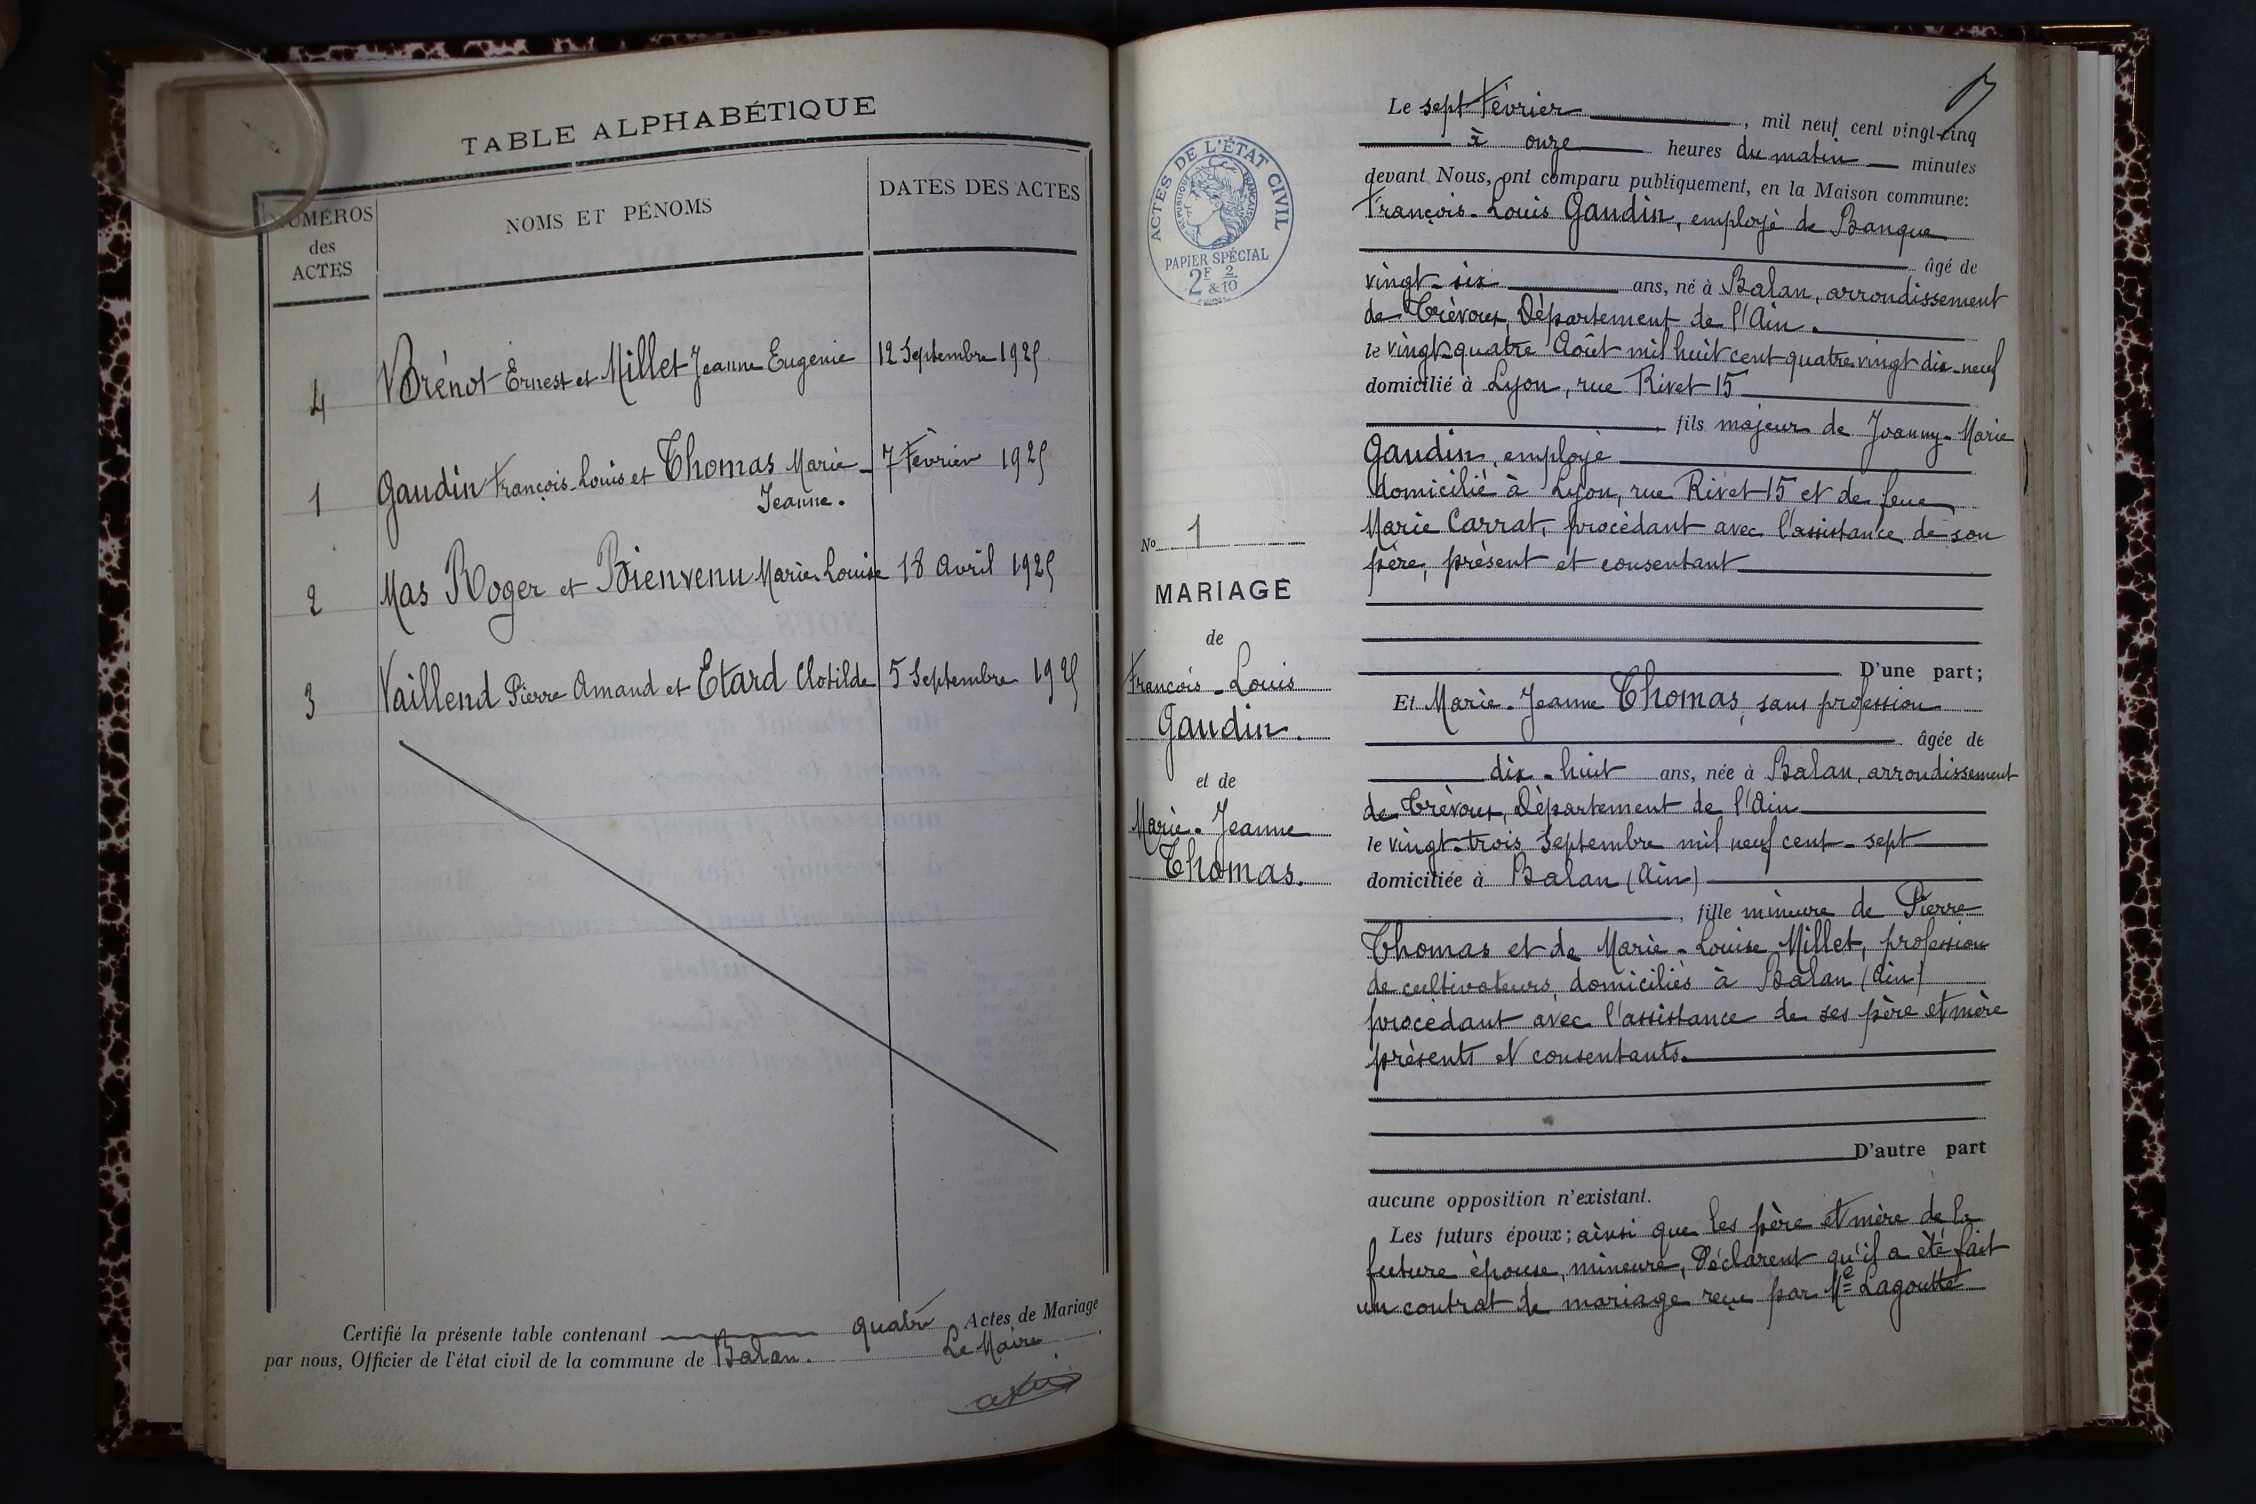 TABLE ALPHABÉTIQUE
NUMÉROS
des
ACTES
NOMS ET PÉNOMS
DATES DES ACTES
4 Brénot Ernest et Millet Jeanne Eugenie 12 Septembre 1925
1 Gaudin François-Louis et Thomas Marie- 7 Février 1925
Jeanne.
2 Mas Roger et Bienvenu Marie Louise 18 Avril 1925
3 Vaillend Pierre Amand et Etard Clotilde 5 Septembre 1925
Certifié la présente table contenant quatre Actes de Mariage
par nous, Officier de l'état civil de la commune de Balan.
Le Maire
ACTES DE L'ÉTAT CIVIL
RÉPUBLIQUE FRANÇAISE
PAPIER SPÉCIAL
2F 2
& 10
No 1
MARIAGE
de
François-Louis
Gaudin.
et de
Marie-Jeanne
Thomas.
Le sept Février, mil neuf cent vingt-cinq
à onze heures du matin minutes
devant Nous, ont comparu publiquement, en la Maison commune:
François-Louis Gaudin, employé de Banque
âgé de
vingt-six ans, né à Balan, arrondissement
de Trévoux, Département de l'Ain.
le vingt-quatre Août mil huit cent quatre vingt dix-neuf
domicilié à Lyon, rue Rivet 15
fils majeur de Joanny-Marie
Gaudin, employé
domicilié à Lyon, rue Rivet 15 et de feue
Marie Carrat, procédant avec l'assistance de son
père, présent et consentant
D'une part;
Et Marie-Jeanne Thomas, sans profession
âgée de
dix-huit ans, née à Balan, arrondissement
de Trévoux, Département de l'Ain
le vingt-trois Septembre mil neuf cent-sept
domiciliée à Balan (Ain)
, fille mineure de Pierre
Thomas et de Marie-Louise Millet, profession
de cultivateurs, domiciliés à Balan (Ain)
procédant avec l'assistance de ses père et mère
présents et consentants.
D'autre part
aucune opposition n'existant.
Les futurs époux; ainsi que les père et mère de la
future épouse, mineure, Déclarent qu'il a été fait
un contrat de mariage reçu par Me Lagoutte